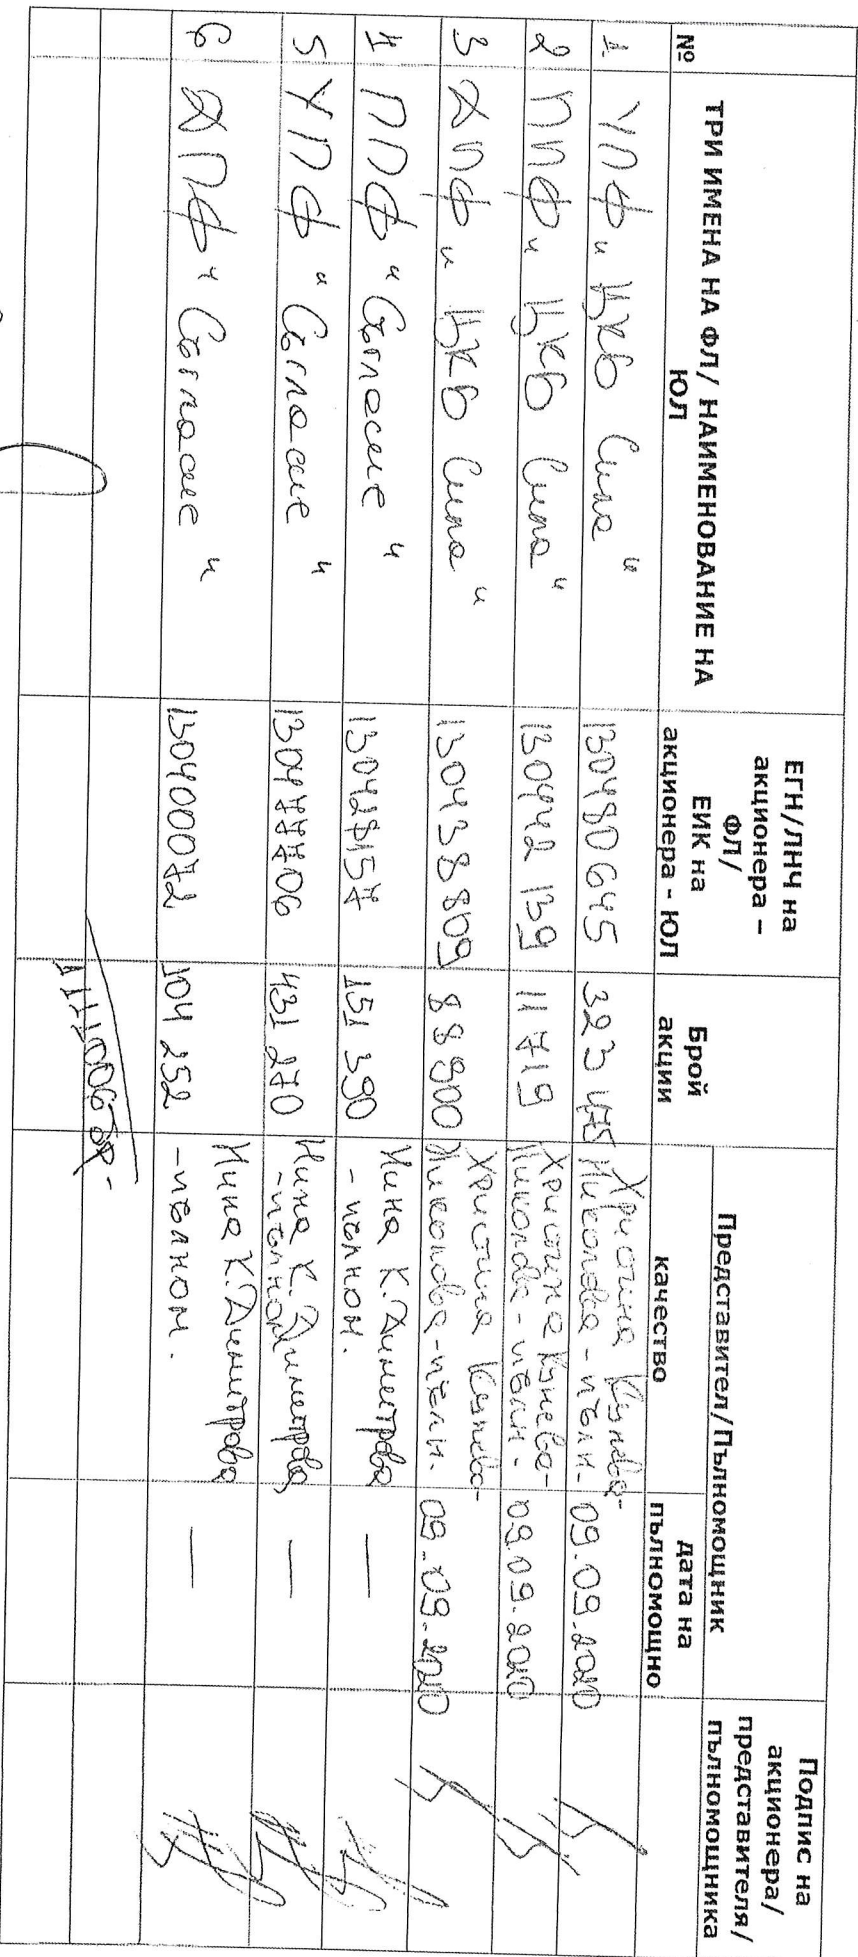 №
ТРИ ИМЕНА НА ФЛ/ НАИМЕНОВАНИЕ НА
ЮЛ
ЕГН/ЛНЧ на
акционера –
ФЛ/
ЕИК на
акционера - ЮЛ
Брой
акции
Представител/Пълномощник
качество
дата на
пълномощно
Подпис на
акционера/
представителя/
пълномощника
1 УПФ "ЦКБ Сила" 130480645 323 475 Христина Кунева-
Николова - пълн. 09.09.2020
2 ППФ "ЦКБ Сила" 130442139 11719 Христина Кунева-
Николова - пълн. 09.09.2020
3 ДПФ "ЦКБ Сила" 130438809 88900 Христина Кунева-
Николова - пълн. 09.09.2020
4 ППФ "Съгласие" 130428157 151 390 Нина К. Димитрова
- пълном. —
5 УПФ "Съгласие" 130477706 431 270 Нина К. Димитрова
- пълном. —
6 ДПФ "Съгласие" 130400072 104 252 Нина К. Димитрова
- пълном. —